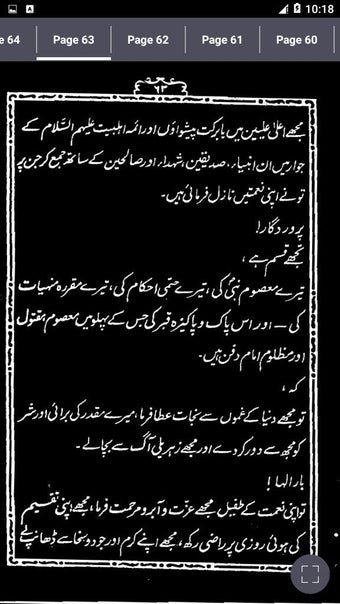 10:18
e 64 Page 63 Page 62 Page 61 Page 60
۶۳
مجھے اعلیٰ علیین میں بابرکت پیشواؤں اور ائمہ اہلبیت علیہم السّلام کے
جوار میں ان انبیاء، صدیقین، شہداء اور صالحین کے ساتھ جمع کر جن پر
تو نے اپنی نعمتیں نازل فرمائی ہیں۔
پروردگارا!
تجھے قسم ہے،
تیرے معصوم نبیؐ کی، تیرے حتمی احکام کی، تیرے مقررہ منہیات
کی — اور اس پاک و پاکیزہ قبر کی جس کے پہلو میں معصوم، مقتول
اور مظلوم امام دفن ہیں۔
کہ،
تو مجھے دنیا کے غموں سے نجات عطا فرما، میرے مقدر کی برائی اور شر
کو مجھ سے دور کر دے اور مجھے زہریلی آگ سے بچالے۔
بارالہا!
تو اپنی نعمت کے طفیل مجھے عزّت و آبرو مرحمت فرما، مجھے اپنی تقسیم
کی ہوئی روزی پر راضی رکھ، مجھے اپنے کرم اور جود و سخا سے ڈھانپ لے